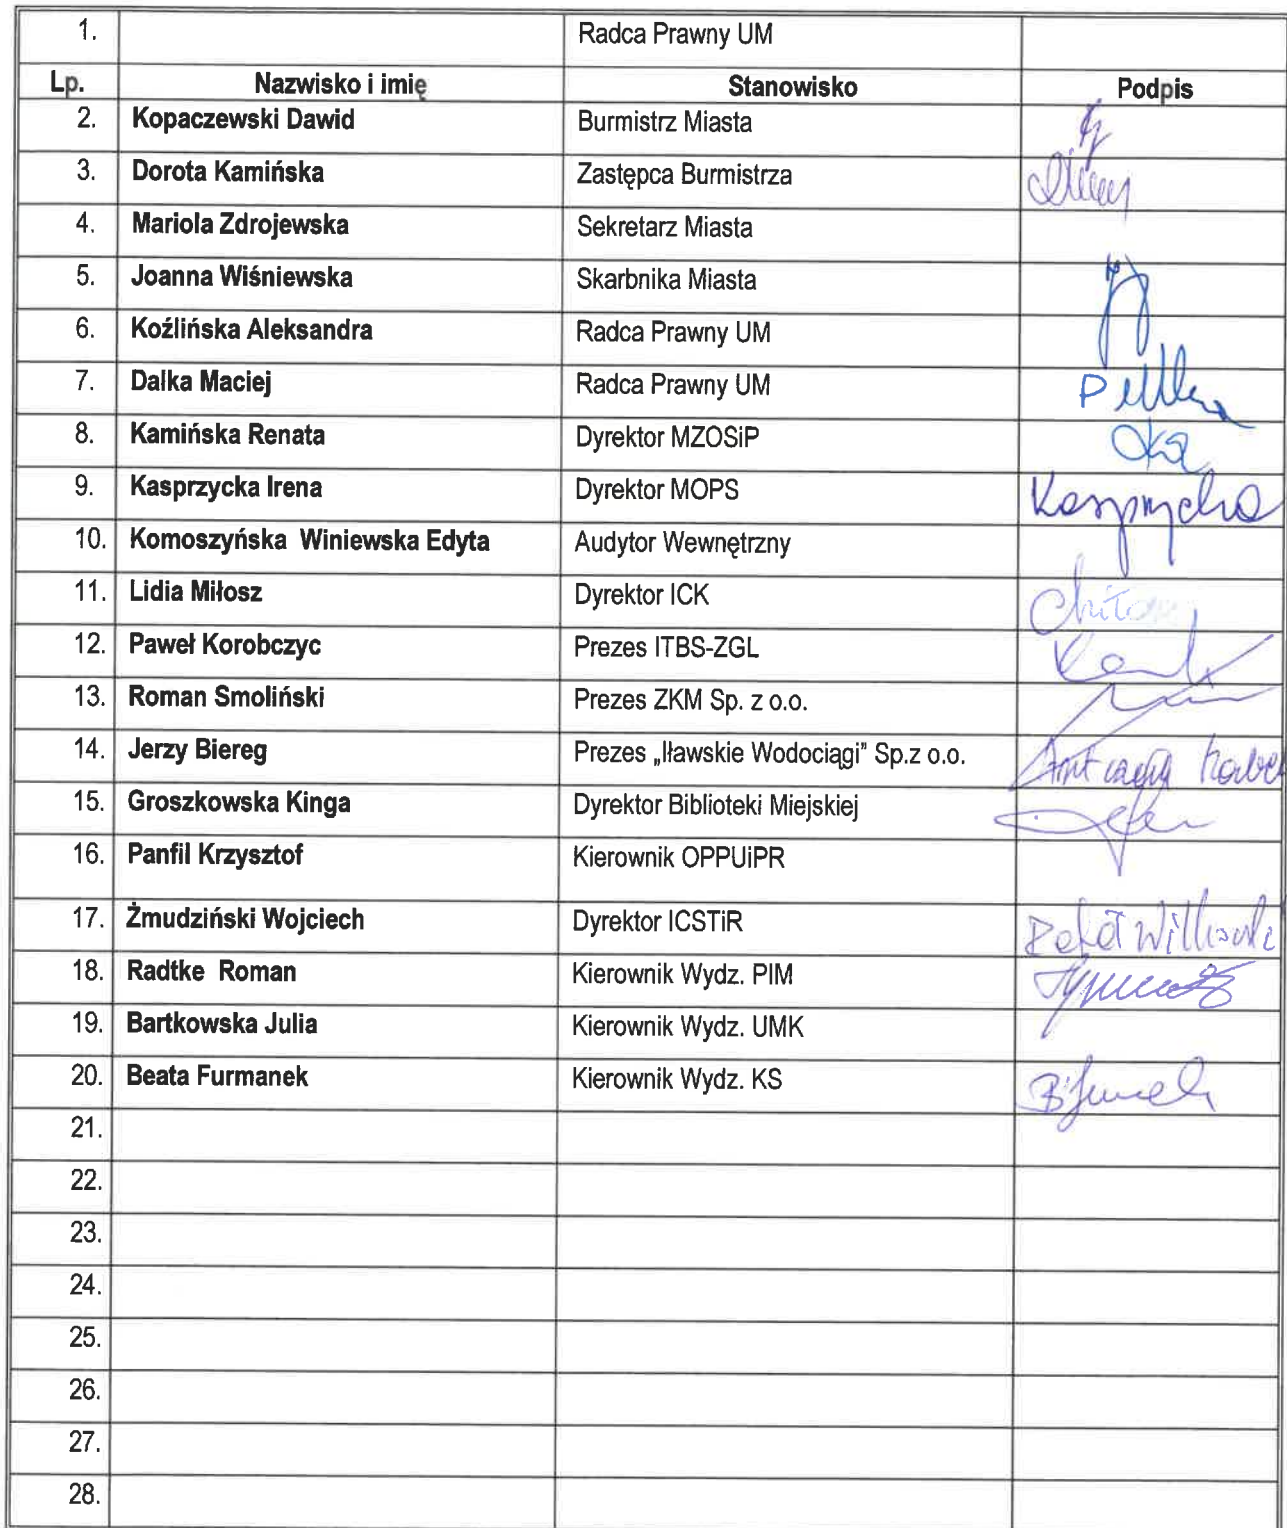 1. Radca Prawny UM
Lp. Nazwisko i imię Stanowisko Podpis
2. Kopaczewski Dawid Burmistrz Miasta
3. Dorota Kamińska Zastępca Burmistrza
4. Mariola Zdrojewska Sekretarz Miasta
5. Joanna Wiśniewska Skarbnika Miasta
6. Koźlińska Aleksandra Radca Prawny UM
7. Dalka Maciej Radca Prawny UM
8. Kamińska Renata Dyrektor MZOSiP
9. Kasprzycka Irena Dyrektor MOPS
10. Komoszyńska Winiewska Edyta Audytor Wewnętrzny
11. Lidia Miłosz Dyrektor ICK
12. Paweł Korobczyc Prezes ITBS-ZGL
13. Roman Smoliński Prezes ZKM Sp. z o.o.
14. Jerzy Biereg Prezes „Iławskie Wodociągi” Sp.z o.o.
15. Groszkowska Kinga Dyrektor Biblioteki Miejskiej
16. Panfil Krzysztof Kierownik OPPUiPR
17. Żmudziński Wojciech Dyrektor ICSTiR
18. Radtke Roman Kierownik Wydz. PIM
19. Bartkowska Julia Kierownik Wydz. UMK
20. Beata Furmanek Kierownik Wydz. KS
21.
22.
23.
24.
25.
26.
27.
28.